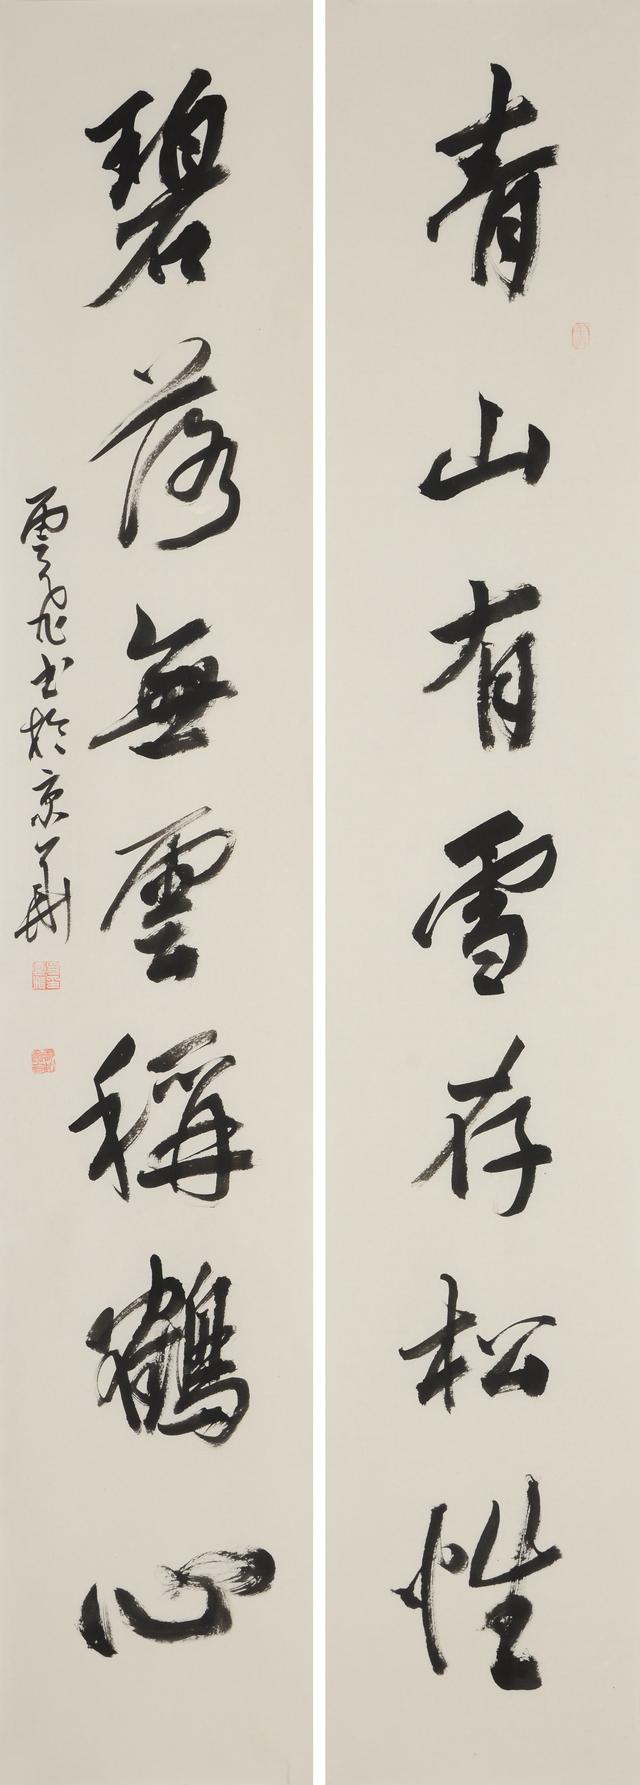 青山有雪存松性
碧落無雲稱鶴心
書於京華